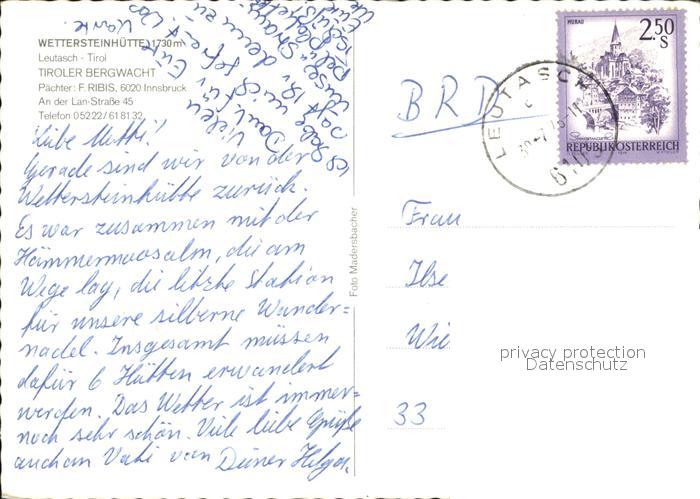 WETTERSTEINHÜTTE, 1730 m
Leutasch - Tirol
TIROLER BERGWACHT
Pächter: F. RIBIS, 6020 Innsbruck
An der Lan-Straße 45
Telefon 0 52 22 / 61 81 32
Liebe Mutti!
Gerade sind wir von der
Wettersteinhütte zurück.
Es war zusammen mit der
Hämmermoosalm, die am
Wege lag, die letzte Station
für unsere silberne Wander=
nadel. Insgesamt müssen
dafür 6 Hütten erwandert
werden. Das Wetter ist immer=
noch sehr schön. Viele liebe Grüße
auch an Vati von Deiner Helga.
Vielen
Dank für Eure
Ich habe mich
Foto Madersbacher
BRD
MURAU
2.50
S
REPUBLIK ÖSTERREICH
LEUTASCH
Frau
Ilse
Wie
33
privacy protection
Datenschutz